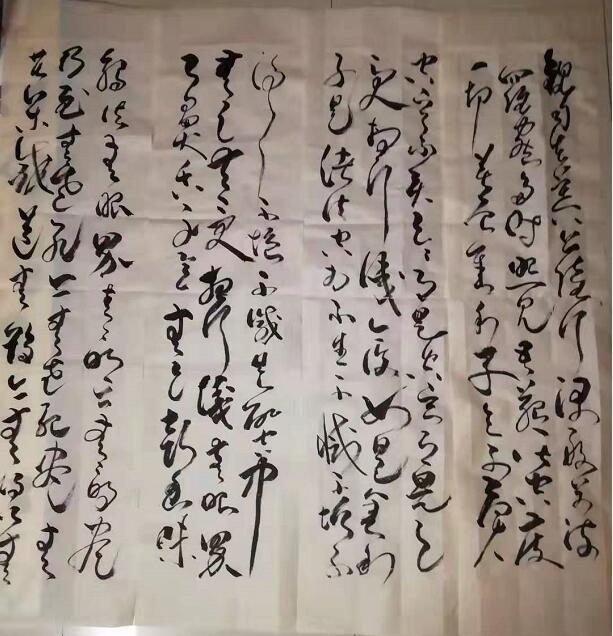 觀自在菩薩行深般若波
羅蜜多時照見五蘊皆空度
一切苦厄舍利子色不異
空空不異色色即是空空即是色
受想行識亦復如是舍利
子是諸法空相不生不滅不垢不
不增不減是故空中
無色無受想行識無眼界
耳鼻舌身意無色聲香味
觸法無眼界無無明亦無無明盡
乃至無老死亦無老死盡無
苦集滅道無智亦無得無